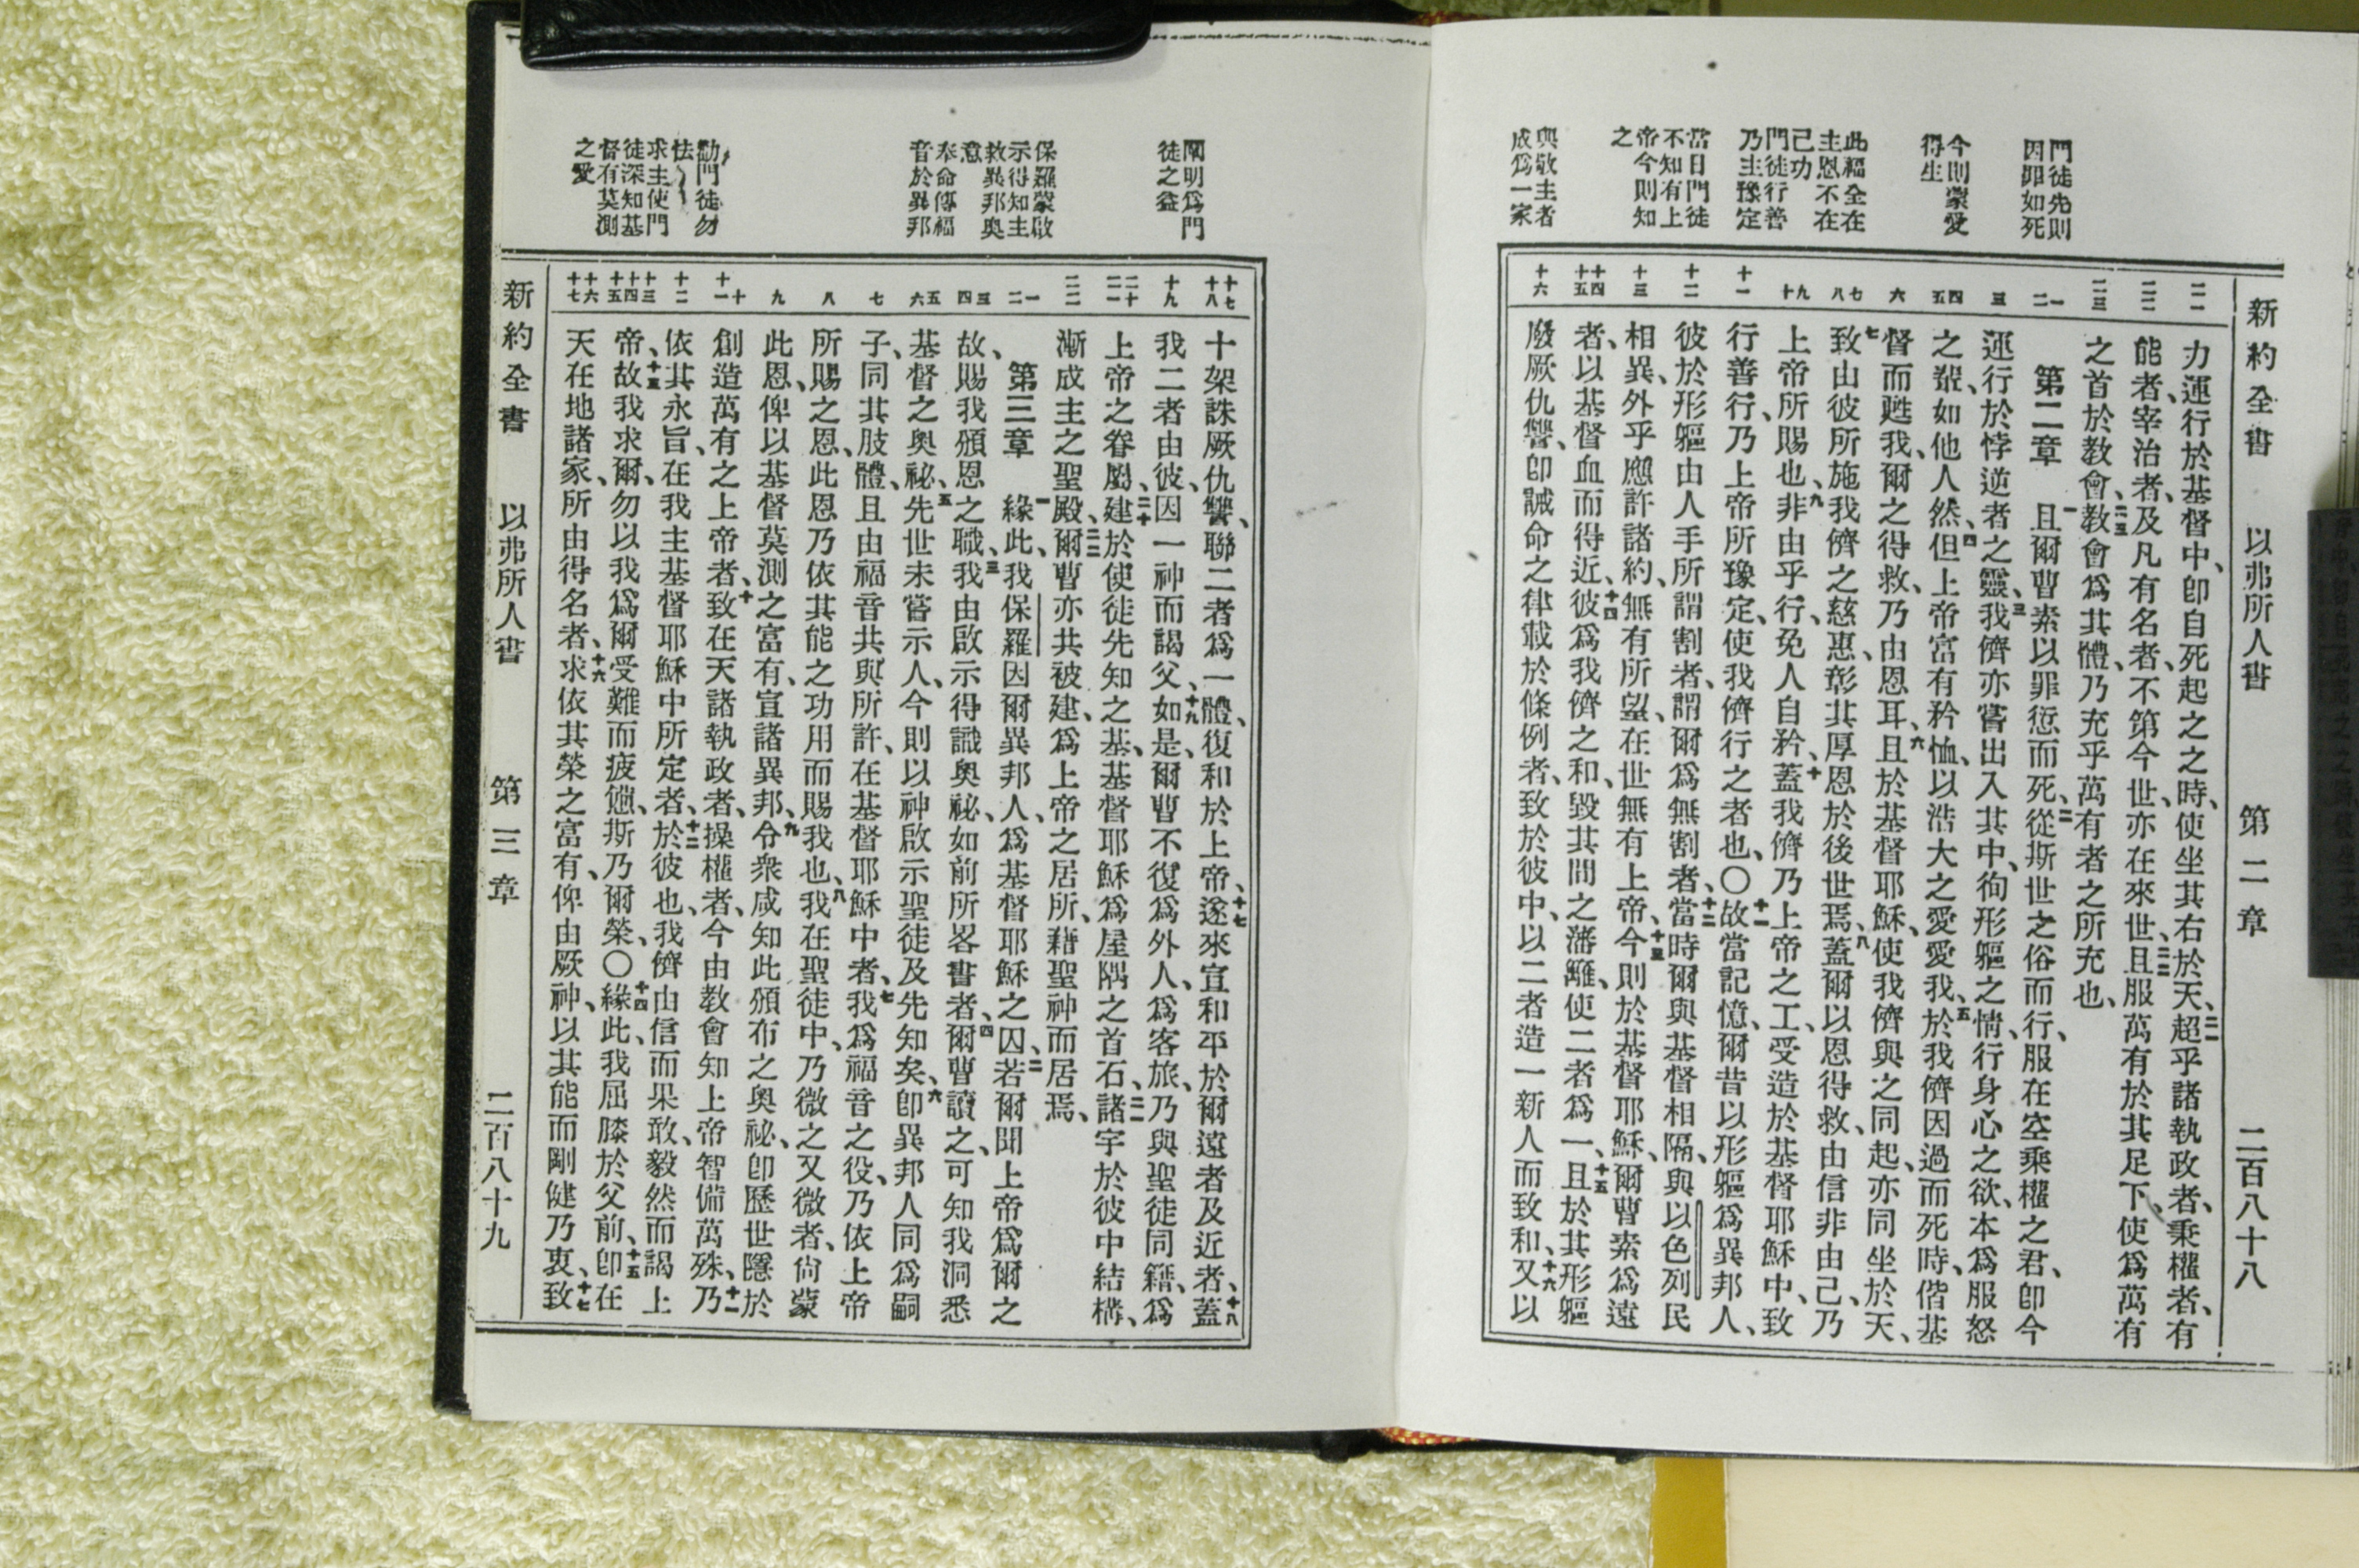 新約全書 以弗所人書 第二章 二百八十八
門徒先則
因罪如死
今則蒙愛
得生
此福全在
主恩不在
己功
門徒行善
乃主豫定
當日門徒
不知有上
帝今則知
之
與敬主者
成爲一家
二一
二二
二三
一
二
三
四
五
六
七
八
九
十
十一
十二
十三
十四
十五
十六
力運行於基督中、卽自死起之之時、使坐其右於天、二一超乎諸執政者、秉權者、有
能者、宰治者、及凡有名者、不第今世、亦在來世、二二且服萬有於其足下、使爲萬有
之首於教會、二三教會爲其體、乃充乎萬有者之所充也、
第二章 一且爾曹素以罪愆而死、二從斯世之俗而行、服在空乘權之君、卽今
運行於悖逆者之靈、三我儕亦嘗出入其中、徇形軀之情、行身心之欲、本爲服怒
之類、如他人然、四但上帝富有矜恤、以浩大之愛愛我、五於我儕因過而死時、偕基
督而甦我、爾之得救、乃由恩耳、六且於基督耶穌、使我儕與之同起、亦同坐於天、
七致由彼所施我儕之慈惠、彰其厚恩於後世焉、八蓋爾以恩得救、由信非由己、乃
上帝所賜也、九非由乎行、免人自矜、十蓋我儕乃上帝之工、受造於基督耶穌中、致
行善行、乃上帝所豫定、使我儕行之者也、〇十一故當記憶、爾昔以形軀爲異邦人、
彼於形軀由人手所謂割者、謂爾爲無割者、十二當時爾與基督相隔、與以色列民
相異、外乎應許諸約、無有所望、在世無有上帝、十三今則於基督耶穌、爾曹素爲遠
者、以基督血而得近、十四彼爲我儕之和、毀其間之藩籬、使二者爲一、十五且於其形軀
廢厥仇讐、卽誡命之律載於條例者、致於彼中、以二者造一新人而致和、十六又以
闡明爲門
徒之益
保羅蒙啟
示得知主
救異邦奥
意
奉命傳福
音於異邦
勸門徒勿
怯
求主使門
徒深知基
督有莫測
之愛
十七
十八
十九
二十
二一
二二
一
二
三
四
五
六
七
八
九
十
十一
十二
十三
十四
十五
十六
十七
十架誅厥仇讐、聯二者爲一體、復和於上帝、十七遂來宣和平於爾遠者及近者、十八蓋
我二者由彼、因一神而謁父、十九如是、爾曹不復爲外人、爲客旅、乃與聖徒同籍、爲
上帝之眷屬、二十建於使徒先知之基、基督耶穌爲屋隅之首石、二一諸宇於彼中結構、
漸成主之聖殿、二二爾曹亦共被建、爲上帝之居所、藉聖神而居焉、
第三章 一緣此、我保羅因爾異邦人、爲基督耶穌之囚、二若爾聞上帝爲爾之
故、賜我頒恩之職、三我由啟示得識奥祕、如前所畧書者、四爾曹讀之、可知我洞悉
基督之奥祕、五先世未嘗示人、今則以神啟示聖徒及先知矣、六卽異邦人同爲嗣
子、同其肢體、且由福音共與所許、在基督耶穌中者、七我爲福音之役、乃依上帝
所賜之恩、此恩乃依其能之功用而賜我也、八我在聖徒中、乃微之又微者、尙蒙
此恩、俾以基督莫測之富有、宣諸異邦、九令衆咸知此頒布之奥祕、卽歷世隱於
創造萬有之上帝者、十致在天諸執政者、操權者、今由教會知上帝智備萬殊、十一乃
依其永旨、在我主基督耶穌中所定者、十二於彼也、我儕由信而果敢、毅然而謁上
帝、十三故我求爾、勿以我爲爾受難而疲憊、斯乃爾榮、〇十四緣此、我屈膝於父前、十五卽在
天在地諸家、所由得名者、十六求依其榮之富有、俾由厥神、以其能而剛健乃衷、十七致
新約全書 以弗所人書 第三章 二百八十九